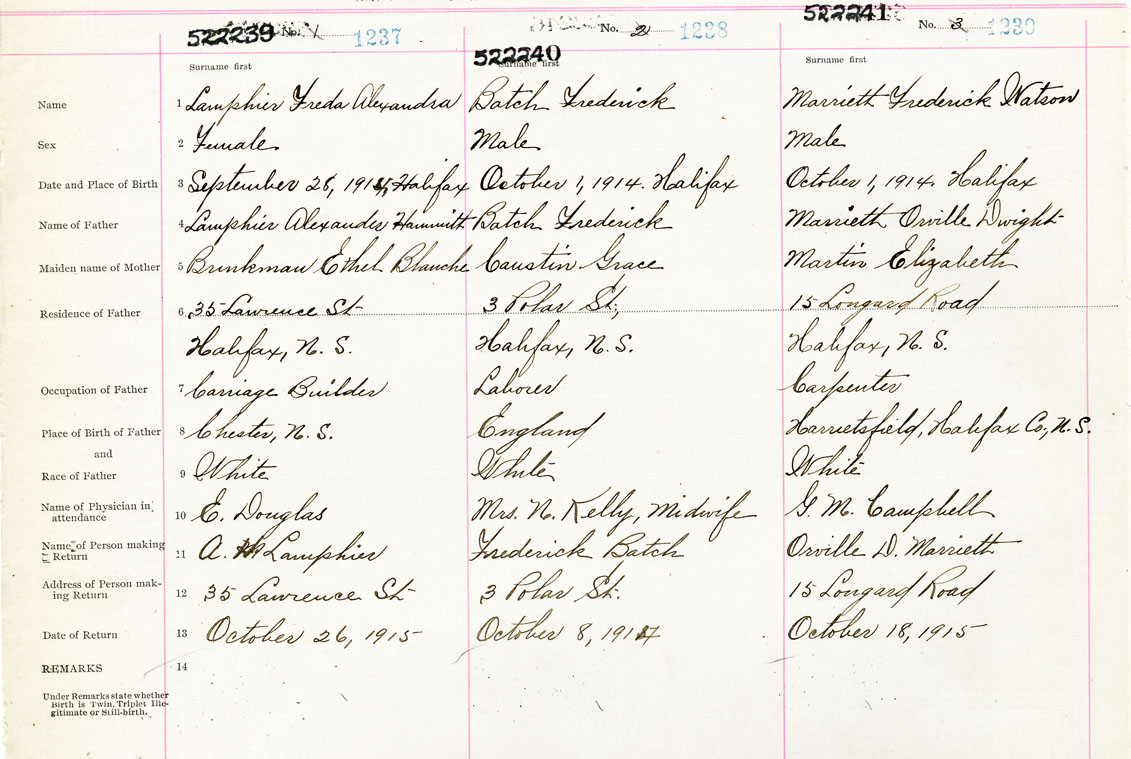 522239 No. 1 1237
522240 No. 2 1238
522241 No. 3 1239
Surname first Surname first Surname first
Name 1 Lamphier Freda Alexandra Batch Frederick Marrieth Frederick Watson
Sex 2 Female Male Male
Date and Place of Birth 3 September 28, 1914, Halifax October 1, 1914. Halifax October 1, 1914. Halifax
Name of Father 4 Lamphier Alexander Hammitt Batch Frederick Marrieth Orville Dwight
Maiden name of Mother 5 Brinkman Ethel Blanche Caustin Grace Martin Elizabeth
Residence of Father 6 35 Lawrence St 3 Polar St., 15 Longard Road
Halifax, N. S. Halifax, N. S. Halifax, N. S.
Occupation of Father 7 Carriage Builder Laborer Carpenter
Place of Birth of Father 8 Chester, N. S. England Harrietsfield, Halifax Co., N. S.
and
Race of Father 9 White White White
Name of Physician in attendance 10 E. Douglas Mrs. N. Kelly, Midwife G. M. Campbell
Name of Person making Return 11 A. H. Lamphier Frederick Batch Orville D. Marrieth
Address of Person making Return 12 35 Lawrence St 3 Polar St. 15 Longard Road
Date of Return 13 October 26, 1915 October 8, 1914 October 18, 1915
REMARKS 14
Under Remarks state whether
Birth is Twin, Triplet Ille-
gitimate or Still-birth.